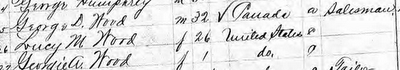 George Humphrey
5 George D. Wood m 32 ✓ Canada a Salesman
26 Lucy M Wood f 26 United States 8
22 Georgie A Wood f 1 do. 8